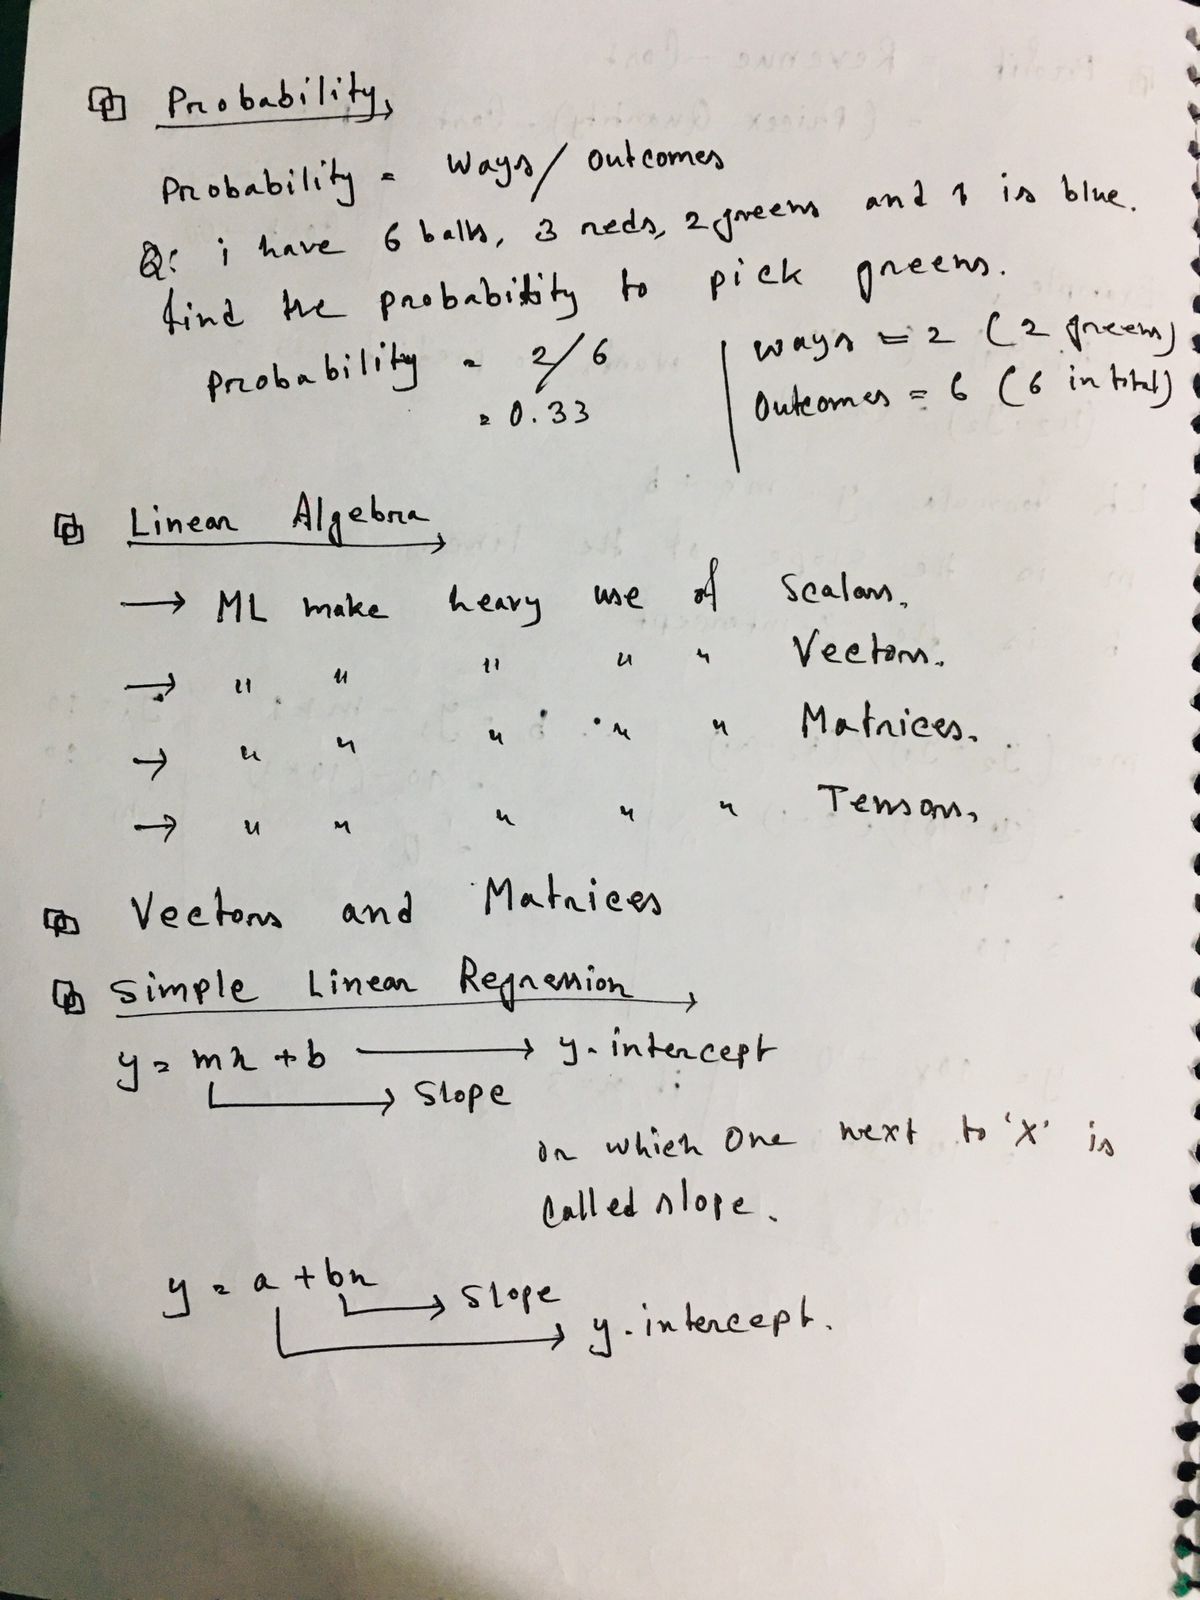 Probability
Probability = ways / outcomes
Q: i have 6 balls, 3 reds, 2 greens and 1 is blue.
find the probability to pick greens.
Probability = 2/6
= 0.33
ways = 2 (2 greens)
Outcomes = 6 (6 in total)
Linear Algebra
→ ML make heavy use of Scalars.
→ " " " " " Vectors.
→ " " " " " Matrices.
→ " " " " " Tensors.
Vectors and Matrices
Simple Linear Regression
y = mx + b → y-intercept
→ Slope
or which one next to 'X' is
called slope.
y = a + bx
→ Slope
→ y-intercept.